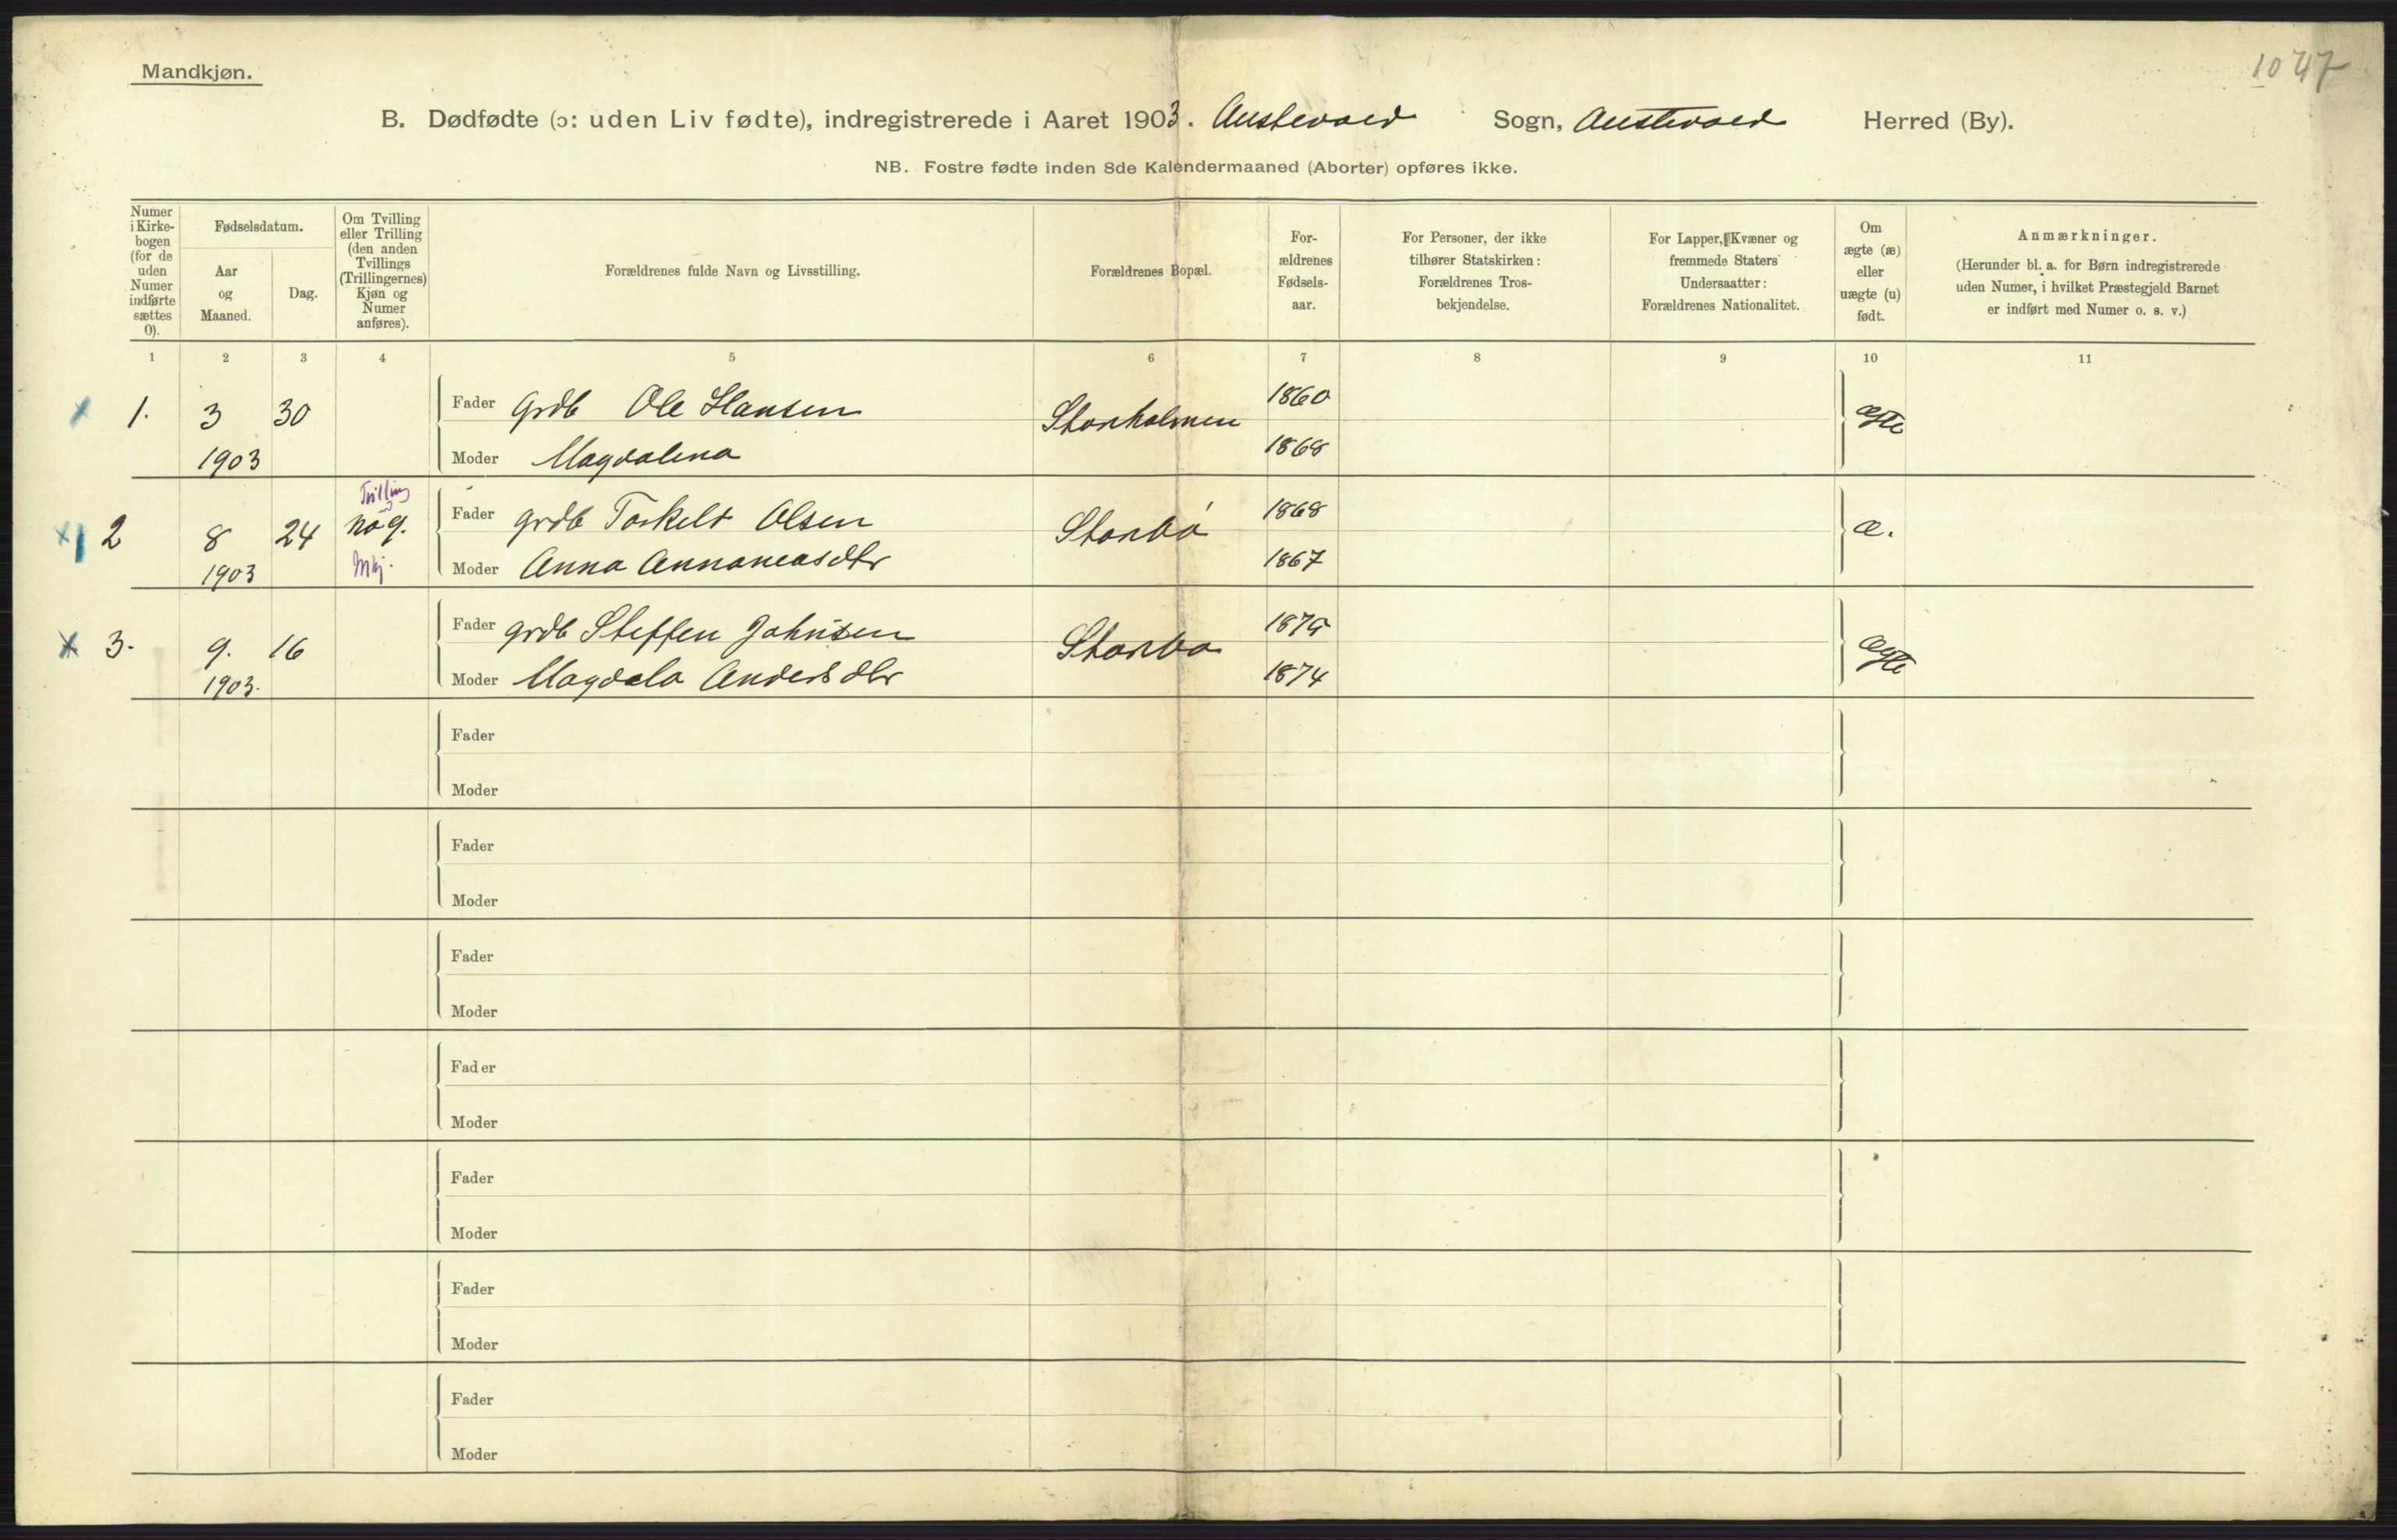 Mandkjøn.
1047
B. Dødfødte (ɔ: uden Liv fødte), indregistrerede i Aaret 1903. Austevold Sogn, Austevold Herred (By).
NB. Fostre fødte inden 8de Kalendermaaned (Aborter) opføres ikke.
Numer i Kirke-bogen (for de uden Numer indførte sættes 0).
Fødselsdatum.
Aar og Maaned.
Dag.
Om Tvilling eller Trilling (den anden Tvillings (Trillingernes) Kjøn og Numer anføres).
Forældrenes fulde Navn og Livsstilling.
Forældrenes Bopæl.
For-ældrenes Fødsels-aar.
For Personer, der ikke tilhører Statskirken: Forældrenes Tros-bekjendelse.
For Lapper, Kvæner og fremmede Staters Undersaatter: Forældrenes Nationalitet.
Om ægte (æ) eller uægte (u) født.
Anmærkninger.
(Herunder bl. a. for Børn indregistrerede uden Numer, i hvilket Præstegjeld Barnet er indført med Numer o. s. v.)
1 2 3 4 5 6 7 8 9 10 11
1. 3 30 Fader Grdb Ole Hansen Storholmen 1860 ægte
1903 Moder Magdalena 1868
Trilling
2 8 24 No 9. Fader grdb Torkeld Olsen Storbø 1868 æ.
1903 Mkj. Moder Anna Annaneasdtr 1867
3. 9. 16 Fader grdb Steffen Johnsen Storbø 1879 ægte
1903. Moder Magdela Andersdtr 1874
Fader
Moder
Fader
Moder
Fader
Moder
Fader
Moder
Fader
Moder
Fader
Moder
Fader
Moder